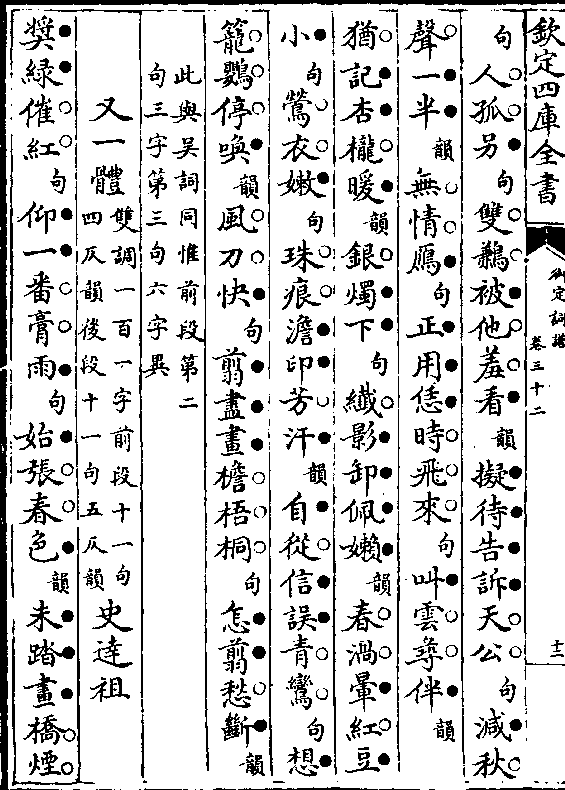 欽定四庫全書
御定詞譜
卷三十二
十二
句人孤另句雙鶼被他羞看韻擬待告訴天公句減秋
聲一半韻無情鴈句正用恁時飛來句叫雲尋伴韻
猶記杏櫳暖韻銀燭下句纖影卸佩嬾韻春渦暈紅豆
小句鶯衣嫩句珠痕澹印芳汗韻自從信誤青鸞句想
籠鸚停喚韻風刀快句翦盡畫檐梧桐句怎翦愁斷韻
此與吴詞同惟前段第二
句三字第三句六字異
又一體雙調一百一字前段十一句
四仄韻後段十一句五仄韻史達祖
奬緑催紅句仰一番膏雨句始張春色韻未踏畫橋煙